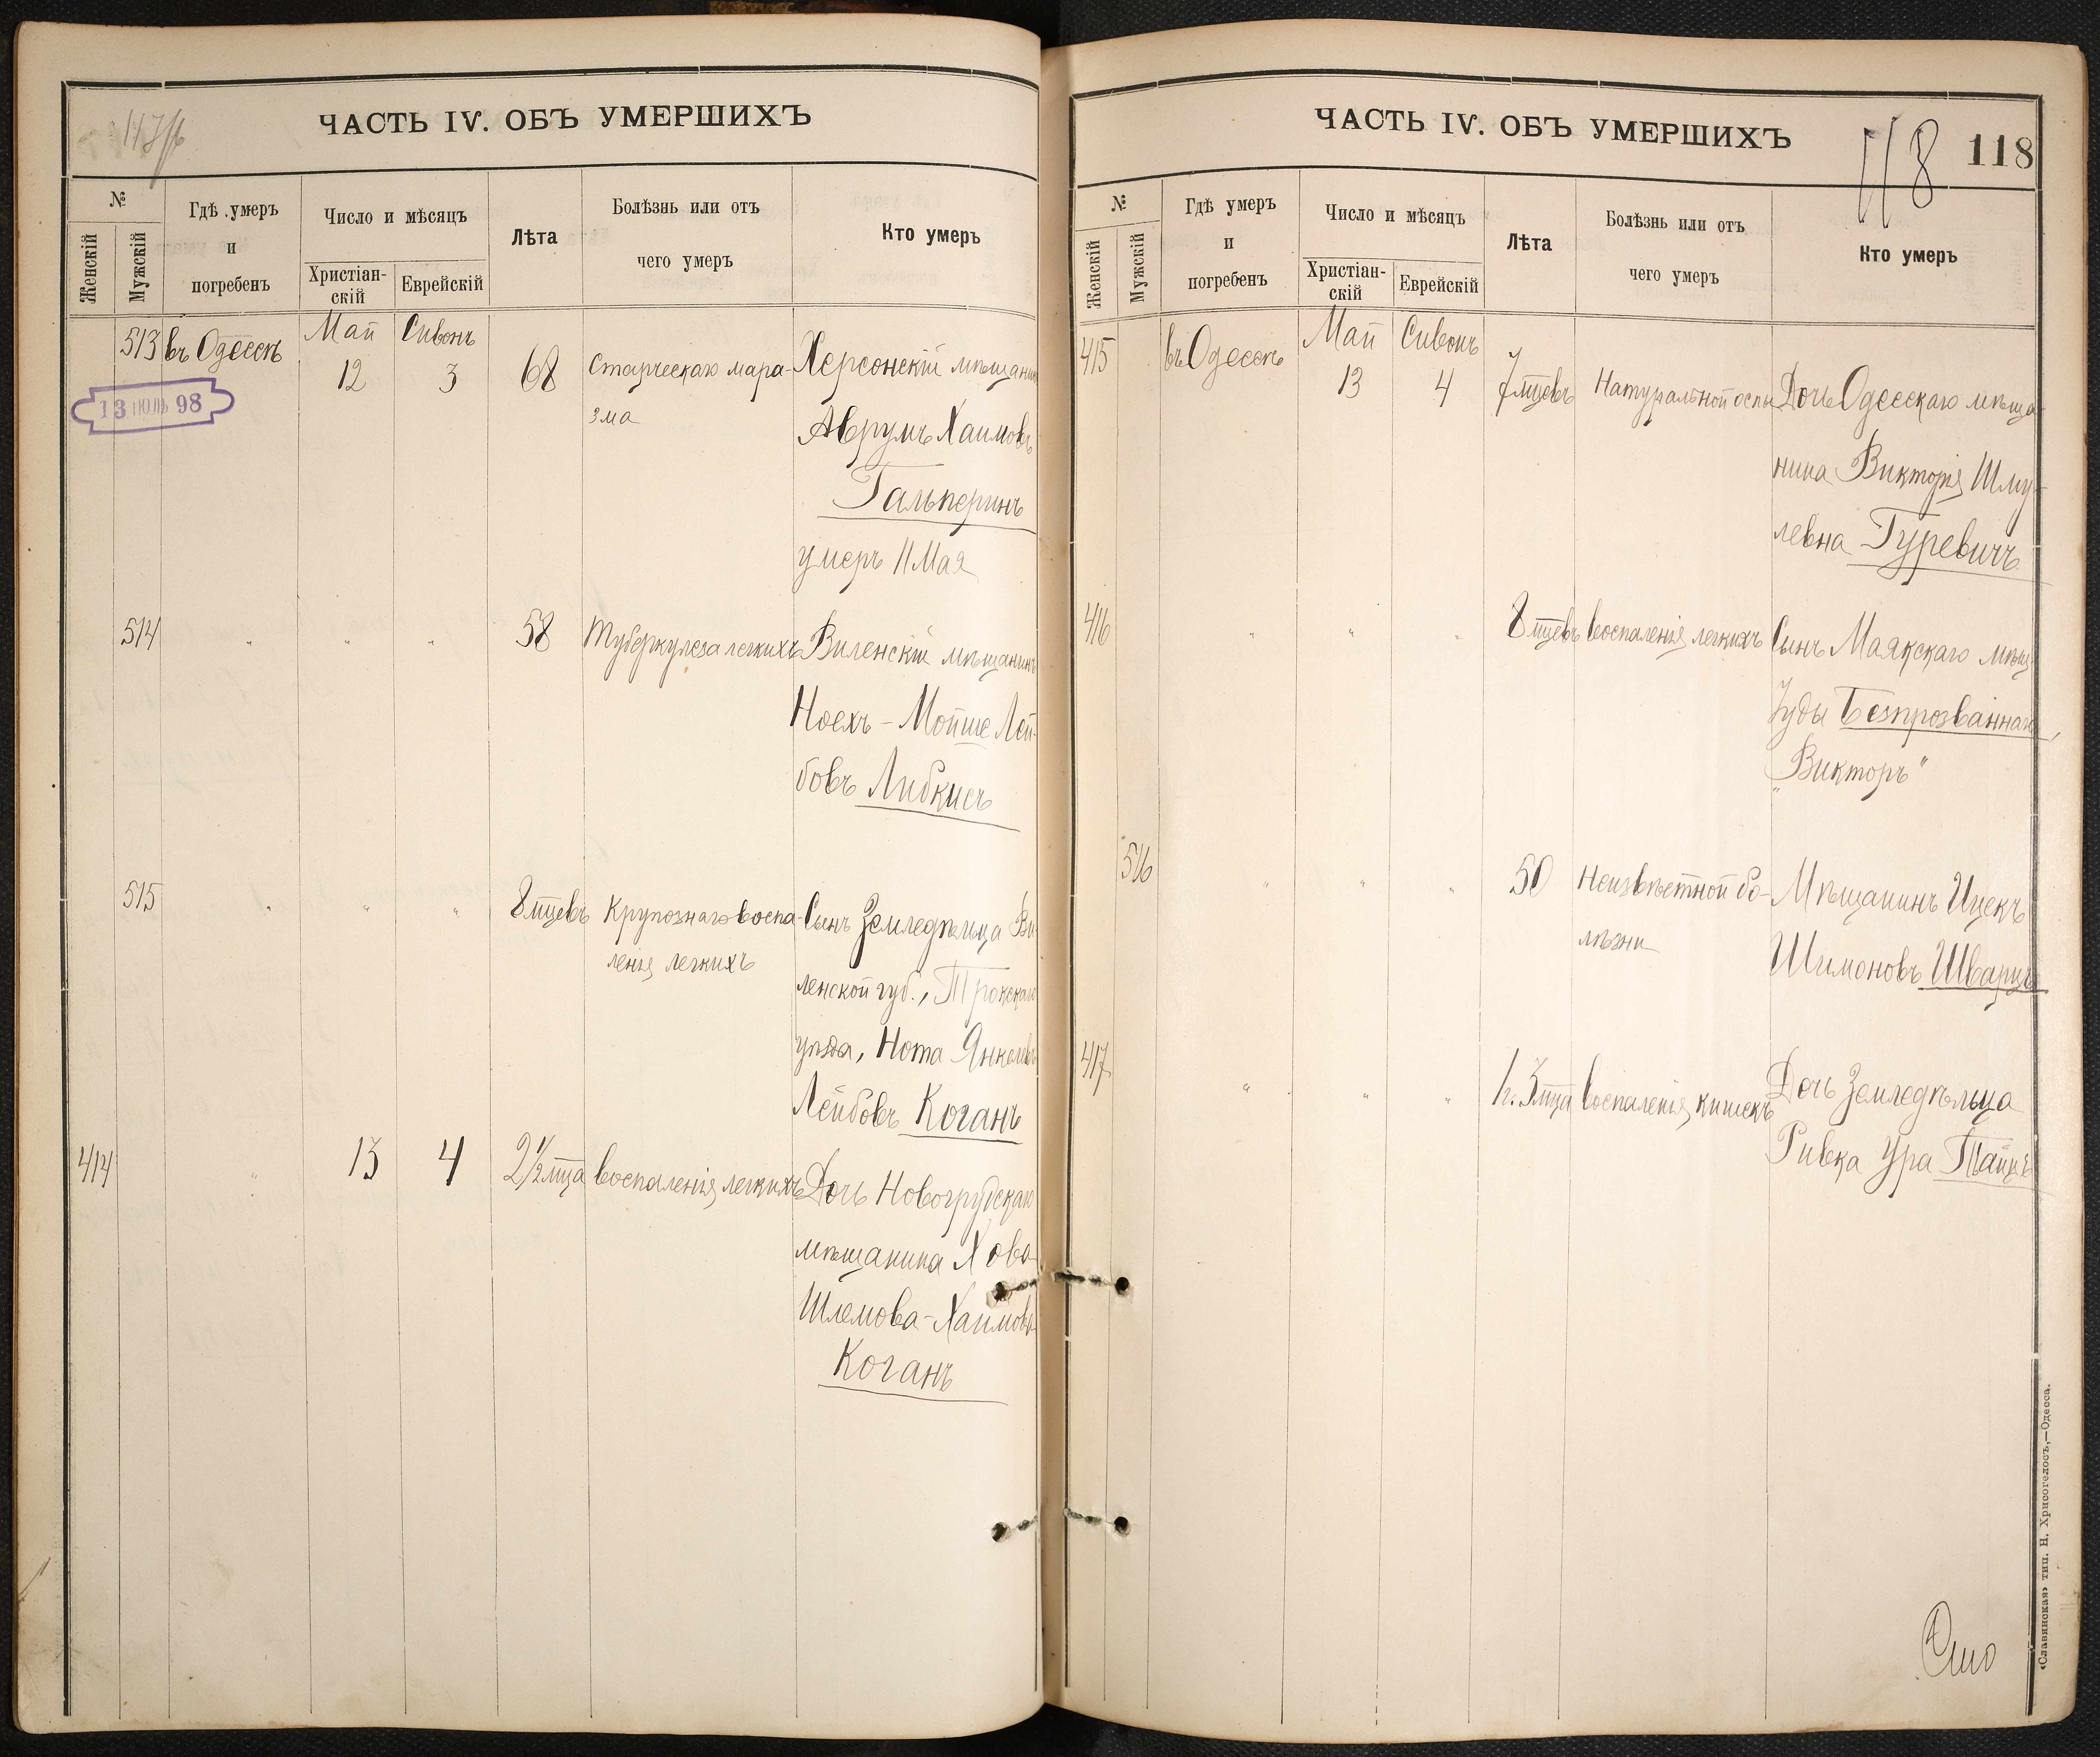 117/б
ЧАСТЬ IV. ОБЪ УМЕРШИХЪ
№
Женскій
Мужскій
Гдѣ умеръ
и
погребенъ
Число и мѣсяцъ
Христіан-
скій
Еврейскій
Лѣта
Болѣзнь или отъ
чего умеръ
Кто умеръ
513 въ Одессѣ Май Сивонъ
12 3 68 Старческаго мара- Херсонскій мѣщанинъ
зма
13 ІЮЛЬ 98
Аврумъ Хаимовъ
Гальперинъ
умеръ 11 Мая
514 " " " 58 Туберкулеза легкихъ Виленскій мѣщанинъ
Ноехъ-Мойше Лей-
бовъ Либкисъ
515 " " " 8 мцевъ Крупознаго воспа- Сынъ Земледѣльца Ви-
ленія легкихъ
ленской губ., Трокскаго
уѣзда, Нота Янкелевъ
Лейбовъ Коганъ
414 " 13 4 2 1/2 мца воспаленія легкихъ Дочь Новогрудскаго
мѣщанина Хова
Шлемова-Хаимова
Коганъ
ЧАСТЬ IV. ОБЪ УМЕРШИХЪ
118
118
№
Женскій
Мужскій
Гдѣ умеръ
и
погребенъ
Число и мѣсяцъ
Христіан-
скій
Еврейскій
Лѣта
Болѣзнь или отъ
чего умеръ
Кто умеръ
415 въ Одессѣ Май Сивонъ
13 4 7 мцевъ Натуральной оспы Дочь Одесскаго мѣща-
нина Викторія Шму-
левна Гуревичъ
416 " " " 8 мцевъ воспаленія легкихъ Сынъ Маякскаго мѣщ.
Іуды Безпрозваннаго,
"Викторъ"
516 " " " 50 Неизвѣстной бо- Мѣщанинъ Ицекъ
лѣзни
Шимоновъ Шварцъ
417 " " " 3 мца воспаленія кишекъ Дочь Земледѣльца
Ривка Ура Тайцъ
«Славянская» тип. Н. Хрисогелосъ,—Одесса.